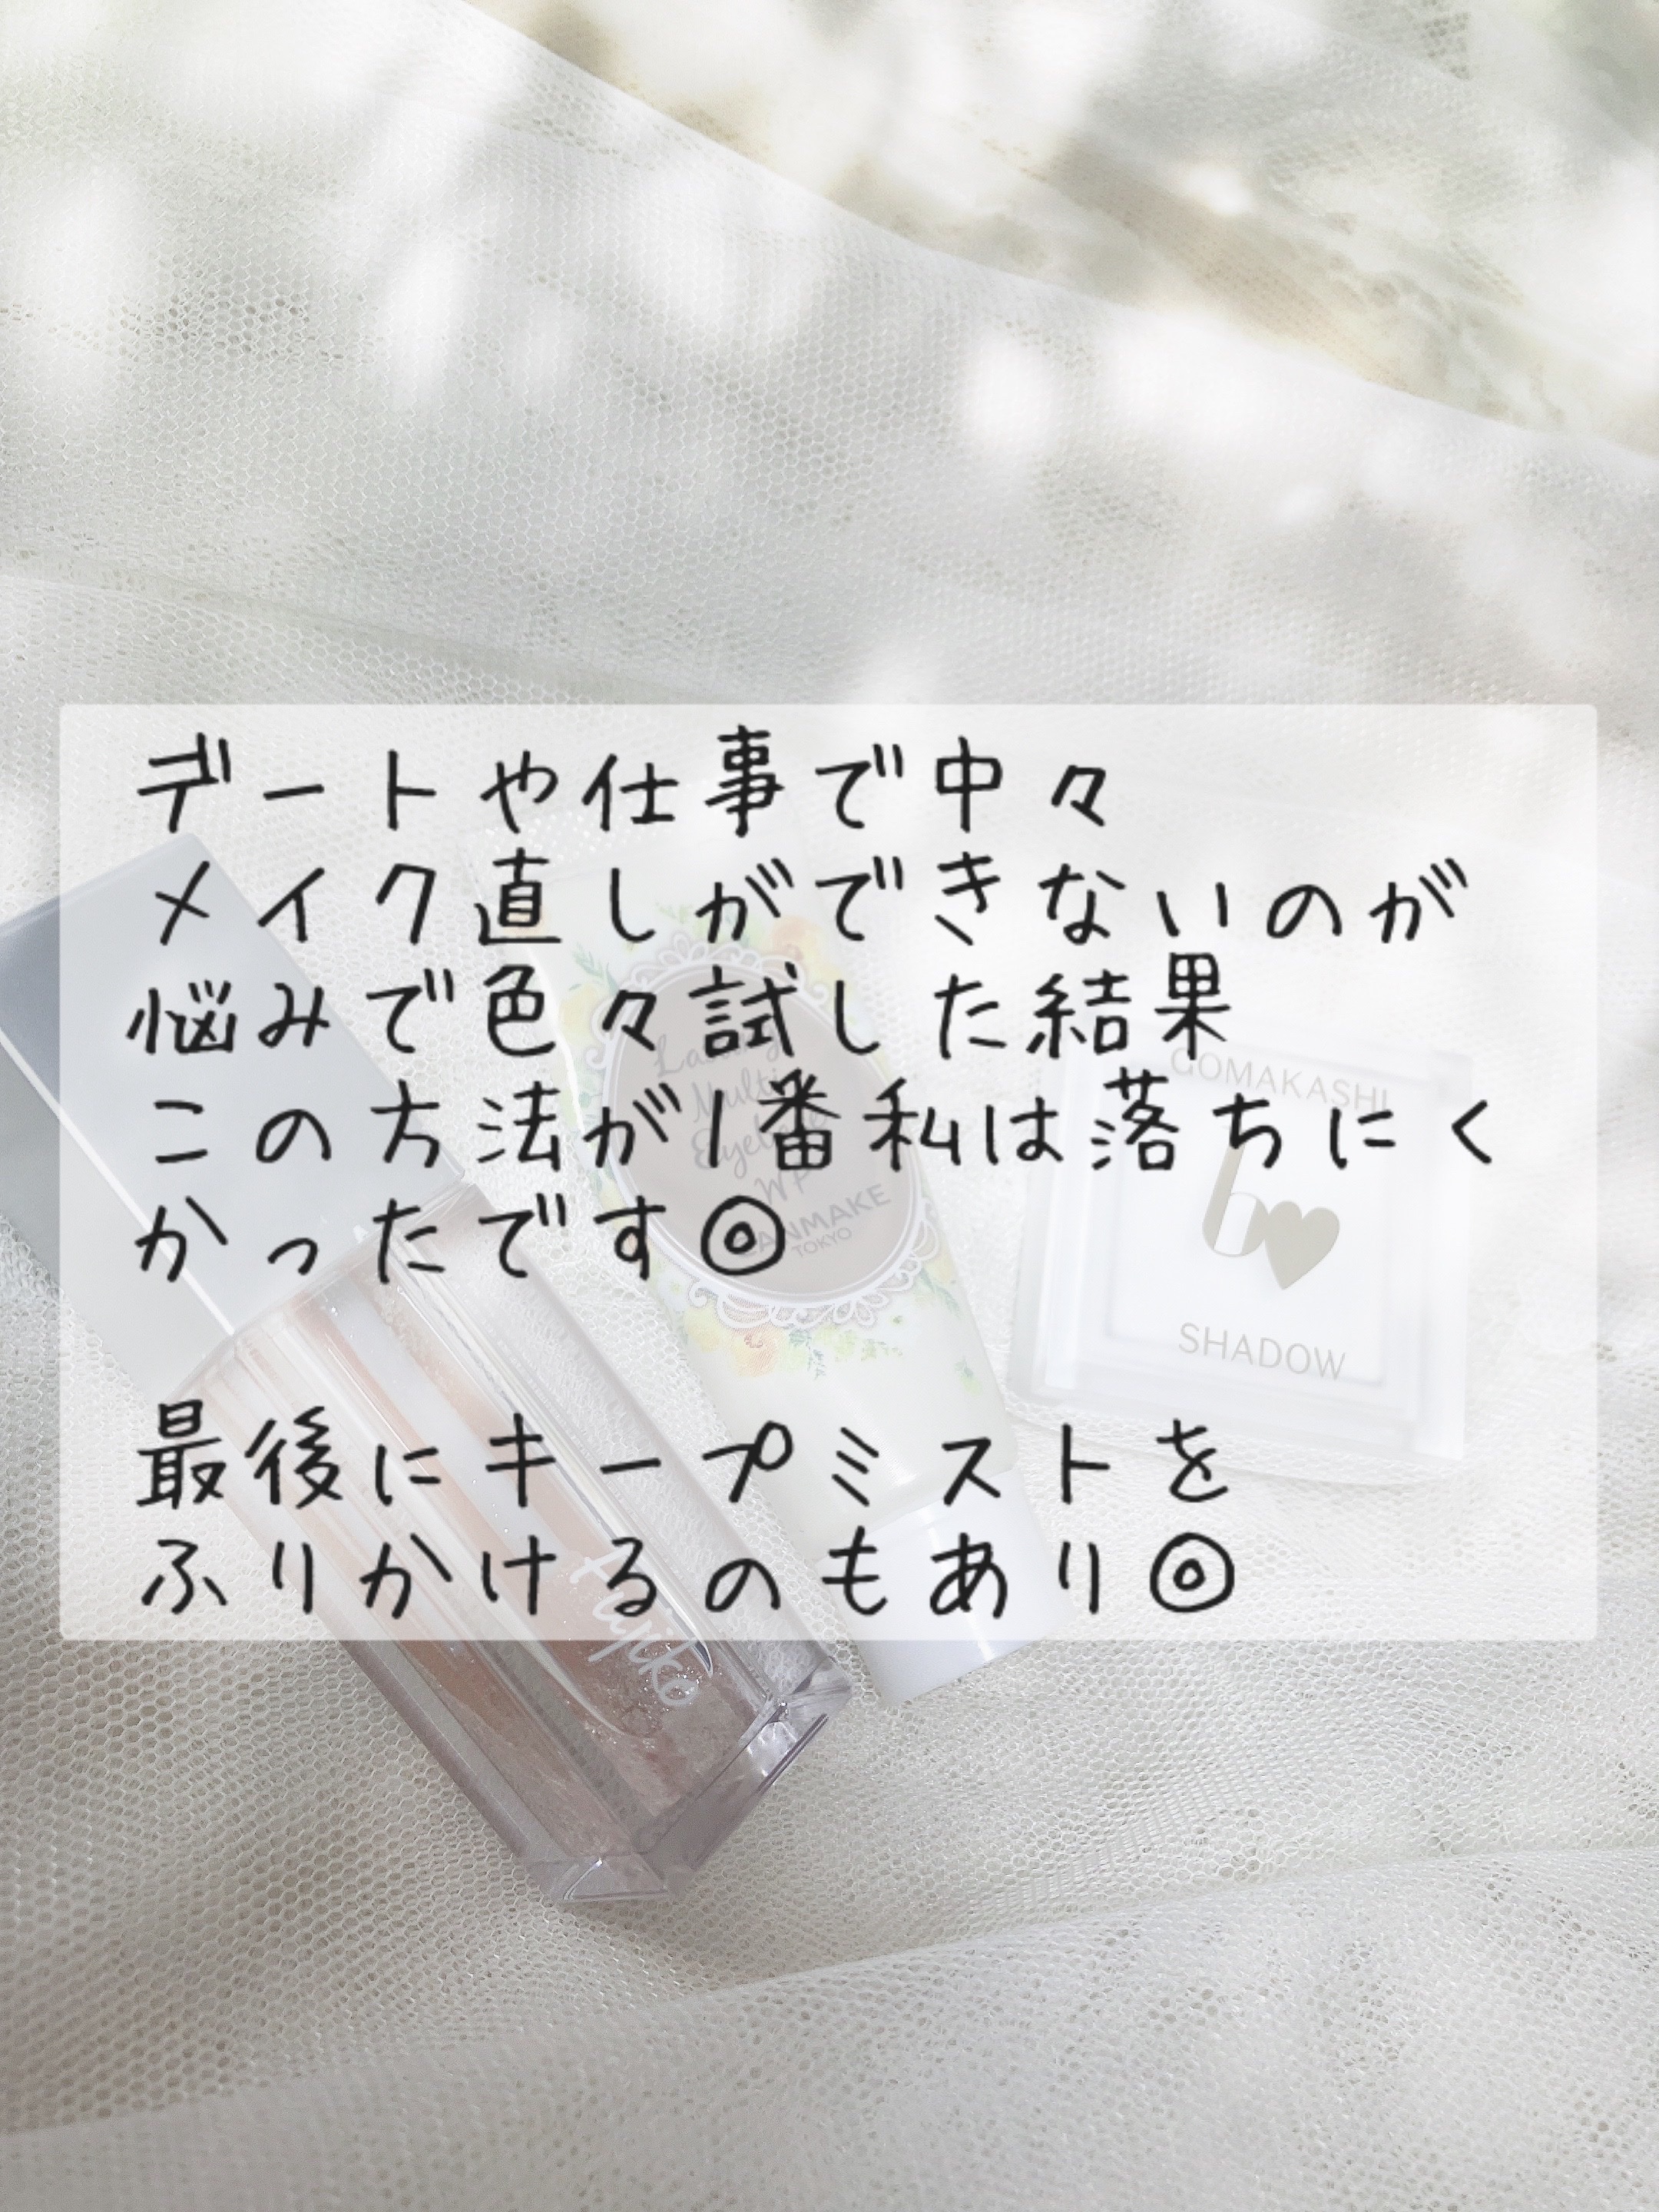 デートや仕事で中々
メイク直しができないのが
悩みで色々試した結果
この方法が1番私は落ちにく
かったです◎
最後にキープミストを
ふりかけるのもあり◎
Lasting
Multi
Eye
WP
CANMAKE
TOKYO
GOMAKASHI
b
SHADOW
Fujiko